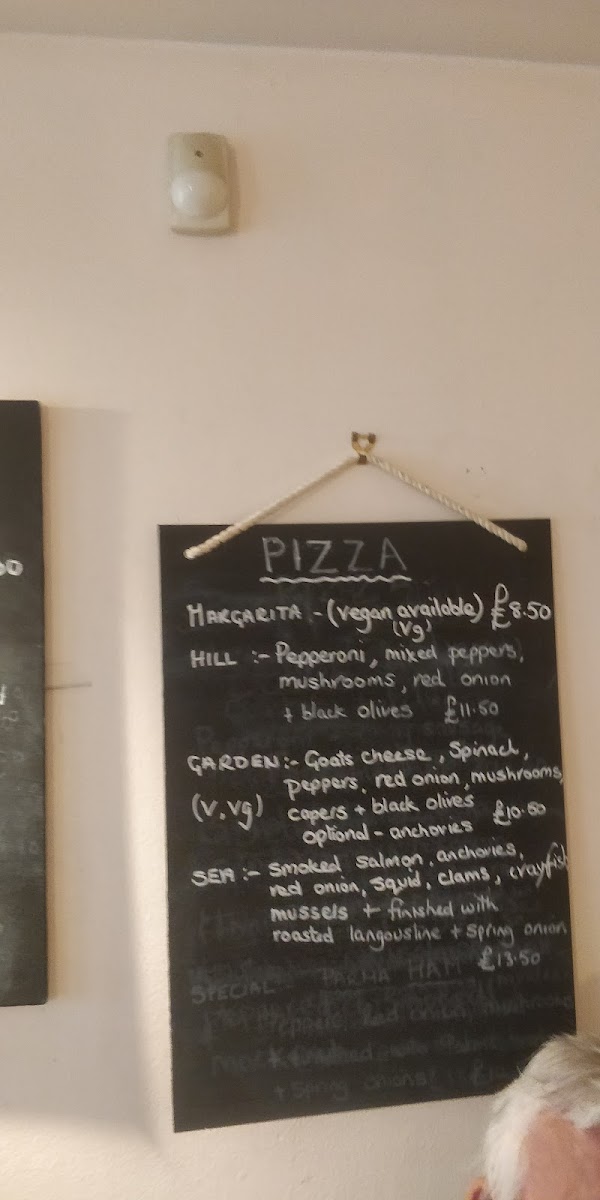 PIZZA
MARGARITA - (vegan available) £8.50
(Vg)
HILL :- Pepperoni, mixed peppers,
mushrooms, red onion
+ black olives £11.50
GARDEN :- Goats cheese, Spinach,
peppers, red onion, mushrooms,
(V, Vg) capers + black olives £10.60
optional - anchovies
SEA :- Smoked salmon, anchovies,
red onion, squid, clams, crayfish
mussels + finished with
roasted langoustine + spring onion
£13.50
SPECIAL PARMA HAM
Peppers, red onion, mushrooms
+ spring onions